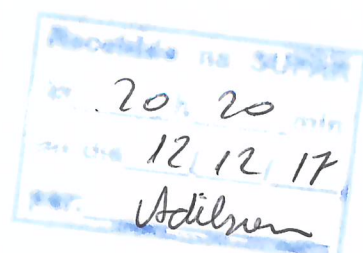 Recebido na SUPAR
às 20 h 20 min
do dia 12 / 12 / 17
por: Adilson